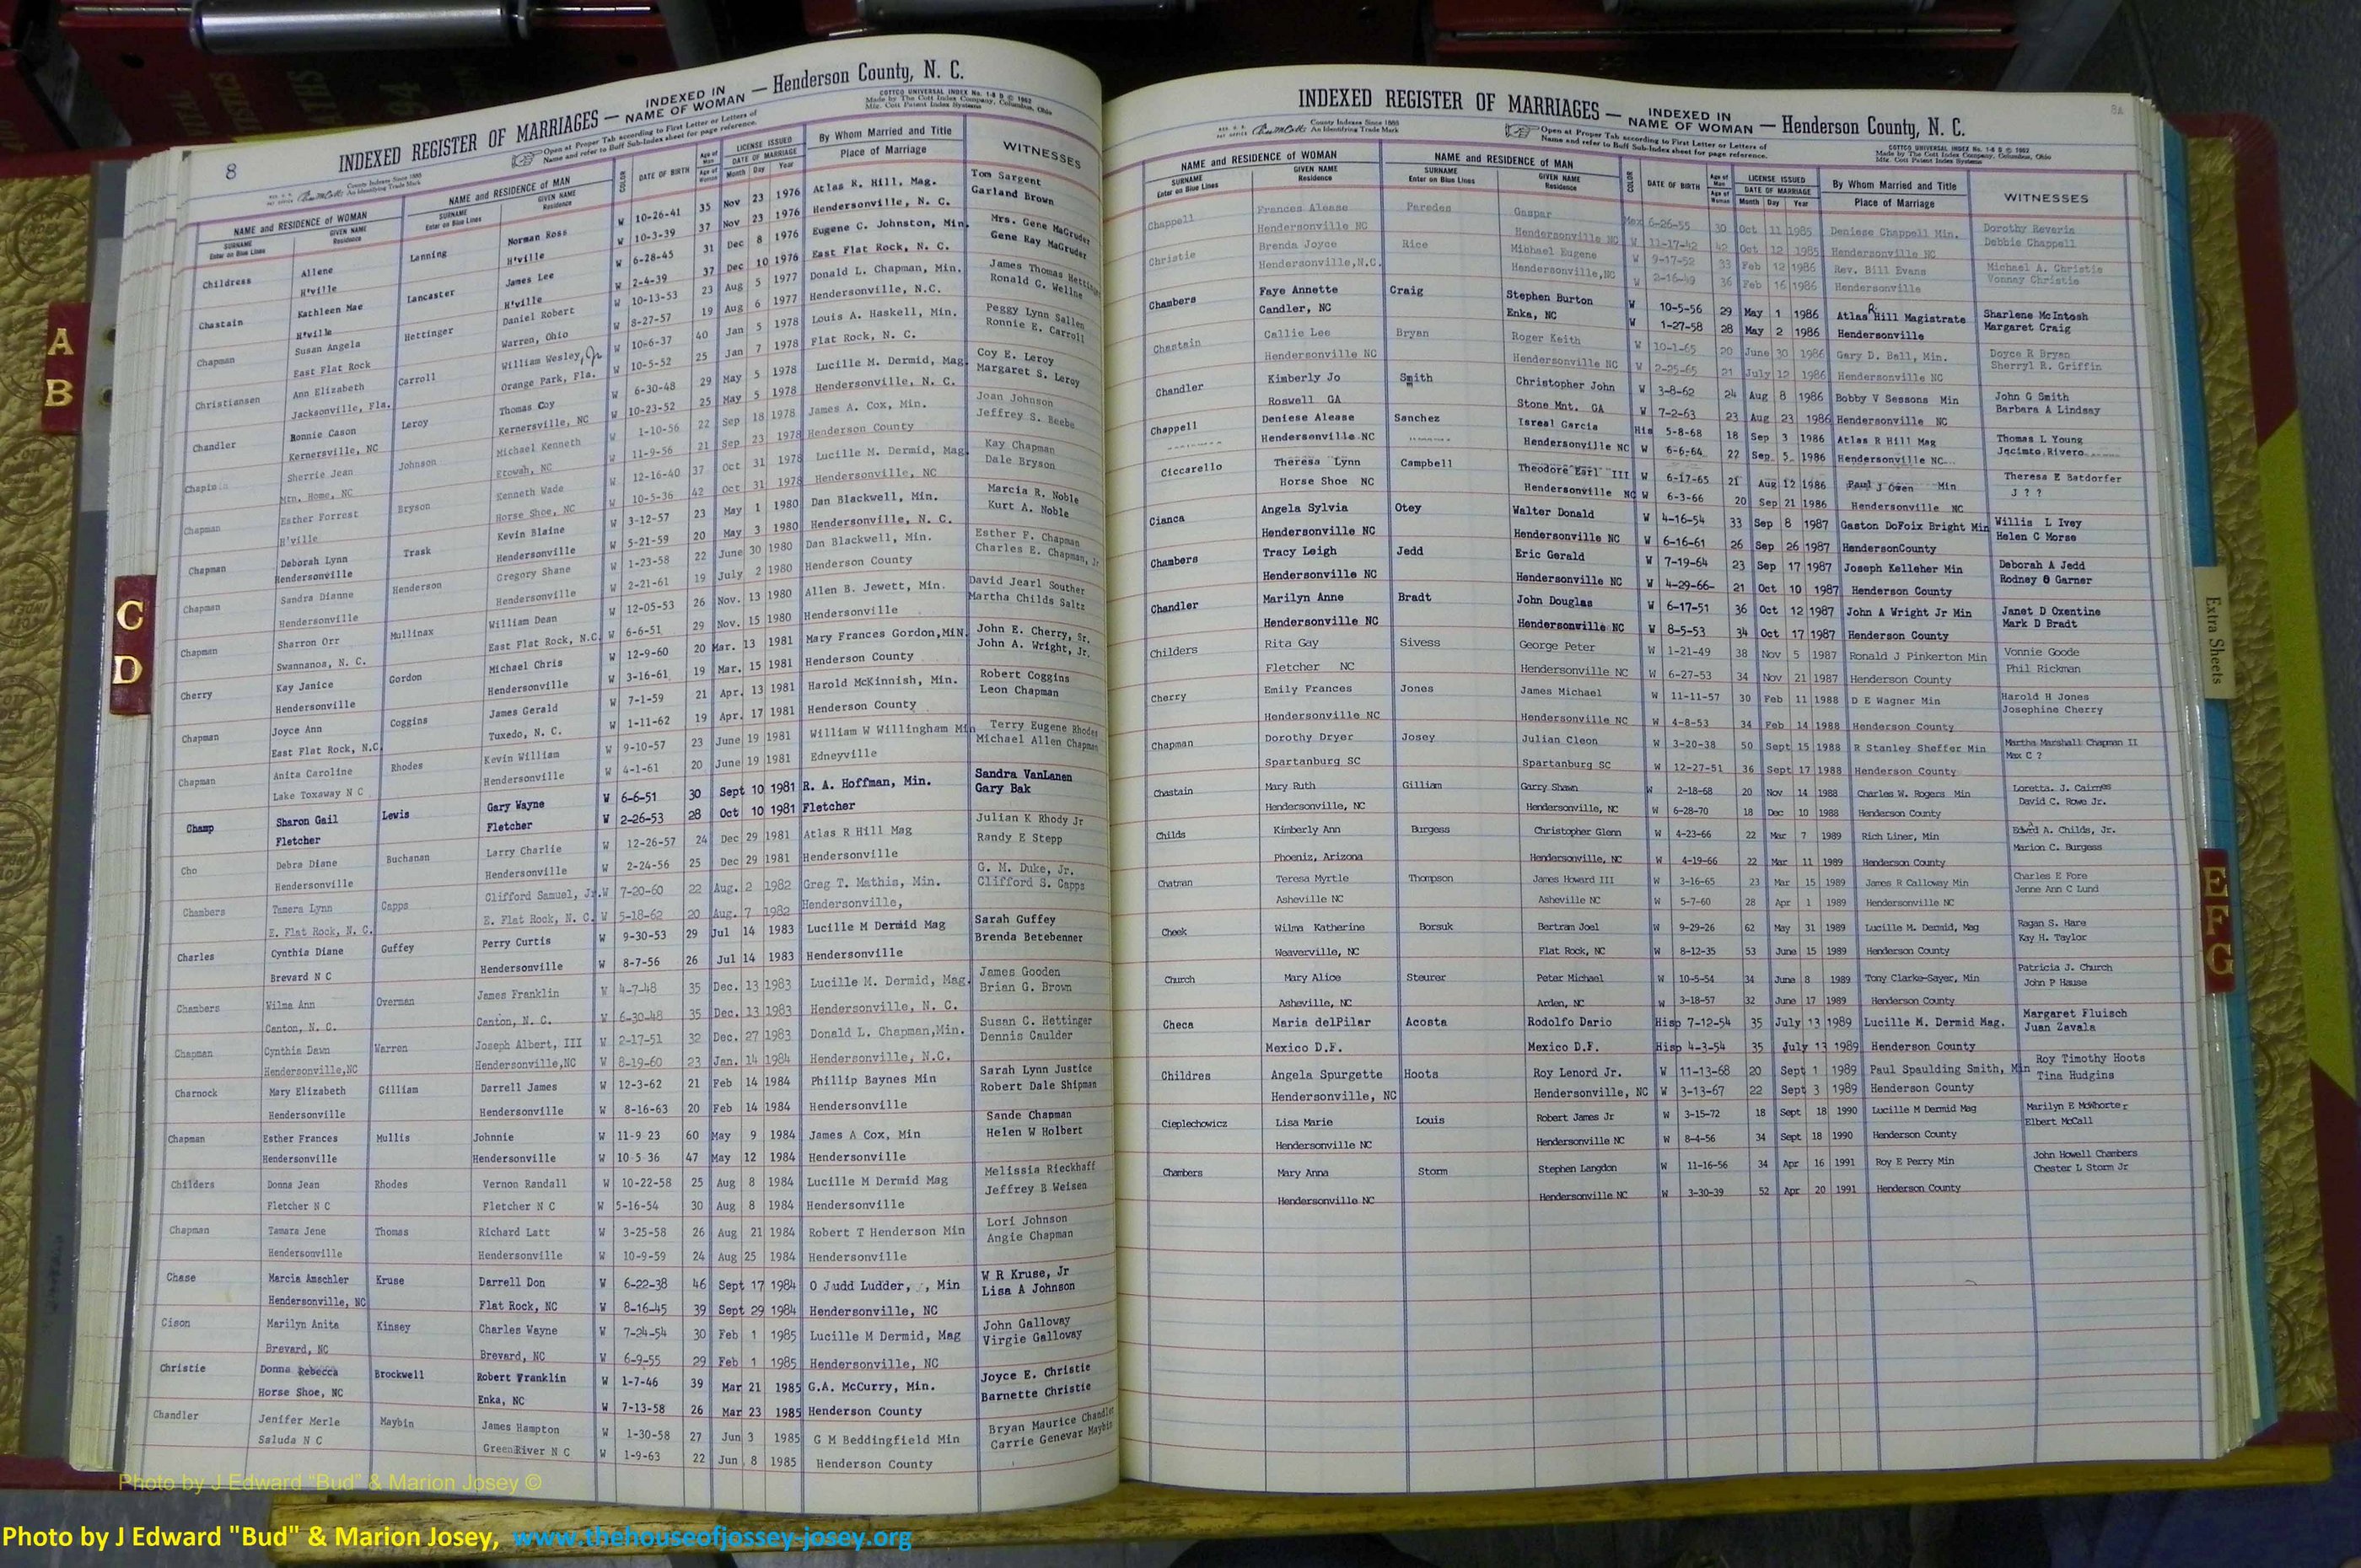 8
INDEXED REGISTER OF MARRIAGES — INDEXED IN NAME OF WOMAN — Henderson County, N. C.
County Indexes Since 1888
An Identifying Trade Mark
Open at Proper Tab according to First Letter or Letters of
Name and refer to Buff Sub-Index sheet for page reference.
COTTCO UNIVERSAL INDEX No. 1-8 D © 1962
Made by The Cott Index Company, Columbus, Ohio
Mfg. Cott Patent Index Systems
NAME and RESIDENCE OF WOMAN NAME and RESIDENCE OF MAN COLOR DATE OF BIRTH Age of Man Age of Woman LICENSE ISSUED DATE OF MARRIAGE By Whom Married and Title WITNESSES
SURNAME Enter on Blue Lines GIVEN NAME Residence SURNAME Enter on Blue Lines GIVEN NAME Residence Month Day Year Place of Marriage
Childress Allene Lanning Norman Ross W 10-26-41 35 Nov 23 1976 Atlas R. Hill, Mag. Tom Sargent
H'ville H'ville W 10-3-39 37 Nov 23 1976 Hendersonville, N. C. Garland Brown
Chastain Kathleen Mae Lancaster James Lee W 6-28-45 31 Dec 8 1976 Eugene C. Johnston, Min. Mrs. Gene MaGruder
H'ville H'ville W 2-4-39 37 Dec 10 1976 East Flat Rock, N. C. Gene Ray MaGruder
Chapman Susan Angela Hettinger Daniel Robert W 10-13-53 23 Aug 5 1977 Donald L. Chapman, Min. James Thomas Hettinger
East Flat Rock Warren, Ohio W 8-27-57 19 Aug 6 1977 Hendersonville, N.C. Ronald G. Wellne
Christiansen Ann Elizabeth Carroll William Wesley, Jr W 10-6-37 40 Jan 5 1978 Louis A. Haskell, Min. Peggy Lynn Sallen
Jacksonville, Fla. Orange Park, Fla. W 10-5-52 25 Jan 7 1978 Flat Rock, N. C. Ronnie E. Carroll
Chandler Bonnie Cason Leroy Thomas Coy W 6-30-48 29 May 5 1978 Lucille M. Dermid, Mag. Coy E. Leroy
Kernersville, NC Kernersville, NC W 10-23-52 25 May 5 1978 Hendersonville, N. C. Margaret S. Leroy
Chapin Sherrie Jean Johnson Michael Kenneth W 1-10-56 22 Sep 18 1978 James A. Cox, Min. Joan Johnson
Mtn. Home, NC Etowah, NC W 11-9-56 21 Sep 23 1978 Henderson County Jeffrey S. Beebe
Chapman Esther Forrest Bryson Kenneth Wade W 12-16-40 37 Oct 31 1978 Lucille M. Dermid, Mag. Kay Chapman
H'ville Horse Shoe, NC W 10-5-36 42 Oct 31 1978 Hendersonville, NC Dale Bryson
Chapman Deborah Lynn Trask Kevin Blaine W 3-12-57 23 May 1 1980 Dan Blackwell, Min. Marcia R. Noble
Hendersonville Hendersonville W 5-21-59 20 May 3 1980 Hendersonville, N. C. Kurt A. Noble
Chapman Sandra Dianne Henderson Gregory Shane W 1-23-58 22 June 30 1980 Dan Blackwell, Min. Esther F. Chapman
Hendersonville Hendersonville W 2-21-61 19 July 2 1980 Henderson County Charles E. Chapman, Jr
Chapman Sharron Orr Mullinax William Dean W 12-05-53 26 Nov. 13 1980 Allen B. Jewett, Min. David Jearl Souther
Swannanoa, N. C. East Flat Rock, N.C. W 6-6-51 29 Nov. 15 1980 Hendersonville Martha Childs Saltz
Cherry Kay Janice Gordon Michael Chris W 12-9-60 20 Mar. 13 1981 Mary Frances Gordon,MiN. John E. Cherry, Sr.
Hendersonville Hendersonville W 3-16-61 19 Mar. 15 1981 Henderson County John A. Wright, Jr.
Chapman Joyce Ann Coggins James Gerald W 7-1-59 21 Apr. 13 1981 Harold McKinnish, Min. Robert Coggins
East Flat Rock, N.C. Tuxedo, N. C. W 1-11-62 19 Apr. 17 1981 Henderson County Leon Chapman
Chapman Anita Caroline Rhodes Kevin William W 9-10-57 23 June 19 1981 William W Willingham Min Terry Eugene Rhodes
Lake Toxaway N C Hendersonville W 4-1-61 20 June 19 1981 Edneyville Michael Allen Chapman
Champ Sharon Gail Lewis Gary Wayne W 6-6-51 30 Sept 10 1981 R. A. Hoffman, Min. Sandra VanLanen
Fletcher Fletcher W 2-26-53 28 Oct 10 1981 Fletcher Gary Bak
Cho Debra Diane Buchanan Larry Charlie W 12-26-57 24 Dec 29 1981 Atlas R Hill Mag Julian K Rhody Jr
Hendersonville Hendersonville W 2-24-56 25 Dec 29 1981 Hendersonville Randy E Stepp
Chambers Tamera Lynn Capps Clifford Samuel, Jr. W 7-20-60 22 Aug. 2 1982 Greg T. Mathis, Min. G. M. Duke, Jr.
E. Flat Rock, N. C. E. Flat Rock, N. C. W 5-18-62 20 Aug. 7 1982 Hendersonville, Clifford S. Capps
Charles Cynthia Diane Guffey Perry Curtis W 9-30-53 29 Jul 14 1983 Lucille M Dermid Mag Sarah Guffey
Brevard N C Hendersonville W 8-7-56 26 Jul 14 1983 Hendersonville Brenda Betebenner
Chambers Wilma Ann Overman James Franklin W 4-7-48 35 Dec. 13 1983 Lucille M. Dermid, Mag. James Gooden
Canton, N. C. Canton, N. C. W 6-30-48 35 Dec. 13 1983 Hendersonville, N. C. Brian G. Brown
Chapman Cynthia Dawn Warren Joseph Albert, III W 2-17-51 32 Dec. 27 1983 Donald L. Chapman,Min. Susan C. Hettinger
Hendersonville,NC Hendersonville,NC W 8-19-60 23 Jan. 14 1984 Hendersonville, N.C. Dennis Caulder
Charnock Mary Elizabeth Gilliam Darrell James W 12-3-62 21 Feb 14 1984 Phillip Baynes Min Sarah Lynn Justice
Hendersonville Hendersonville W 8-16-63 20 Feb 14 1984 Hendersonville Robert Dale Shipman
Chapman Esther Frances Mullis Johnnie W 11-9 23 60 May 9 1984 James A Cox, Min Sande Chapman
Hendersonville Hendersonville W 10-5 36 47 May 12 1984 Hendersonville Helen W Holbert
Childers Donna Jean Rhodes Vernon Randall W 10-22-58 25 Aug 8 1984 Lucille M Dermid Mag Melissia Rieckhaff
Fletcher N C Fletcher N C W 5-16-54 30 Aug 8 1984 Hendersonville Jeffrey B Weisen
Chapman Tamara Jene Thomas Richard Latt W 3-25-58 26 Aug 21 1984 Robert T Henderson Min Lori Johnson
Hendersonville Hendersonville W 10-9-59 24 Aug 25 1984 Hendersonville Angie Chapman
Chase Marcia Amschler Kruse Darrell Don W 6-22-38 46 Sept 17 1984 O Judd Ludder, , Min W R Kruse, Jr
Hendersonville, NC Flat Rock, NC W 8-16-45 39 Sept 29 1984 Hendersonville, NC Lisa A Johnson
Cison Marilyn Anita Kinsey Charles Wayne W 7-24-54 30 Feb 1 1985 Lucille M Dermid, Mag John Galloway
Brevard, NC Brevard, NC W 6-9-55 29 Feb 1 1985 Hendersonville, NC Virgie Galloway
Christie Donna Rebecca Brockwell Robert Franklin W 1-7-46 39 Mar 21 1985 G.A. McCurry, Min. Joyce E. Christie
Horse Shoe, NC Enka, NC W 7-13-58 26 Mar 23 1985 Henderson County Barnette Christie
Chandler Jenifer Merle Maybin James Hampton W 1-30-58 27 Jun 3 1985 G M Beddingfield Min Bryan Maurice Chandler
Saluda N C GreenRiver N C W 1-9-63 22 Jun 8 1985 Henderson County Carrie Genevar Maybin
8A
INDEXED REGISTER OF MARRIAGES — INDEXED IN NAME OF WOMAN — Henderson County, N. C.
County Indexes Since 1888
An Identifying Trade Mark
Open at Proper Tab according to First Letter or Letters of
Name and refer to Buff Sub-Index sheet for page reference.
COTTCO UNIVERSAL INDEX No. 1-8 D © 1962
Made by The Cott Index Company, Columbus, Ohio
Mfg. Cott Patent Index Systems
NAME and RESIDENCE OF WOMAN NAME and RESIDENCE OF MAN COLOR DATE OF BIRTH Age of Man Age of Woman LICENSE ISSUED DATE OF MARRIAGE By Whom Married and Title WITNESSES
SURNAME Enter on Blue Lines GIVEN NAME Residence SURNAME Enter on Blue Lines GIVEN NAME Residence Month Day Year Place of Marriage
Chappell Frances Alease Paredes Gaspar Mex 6-26-55 30 Oct 11 1985 Deniese Chappell Min. Dorothy Revaria
Hendersonville NC Hendersonville NC W 11-17-42 42 Oct 12 1985 Hendersonville NC Debbie Chappell
Christie Brenda Joyce Rice Michael Eugene W 9-17-52 33 Feb 12 1986 Rev. Bill Evans Michael A. Christie
Hendersonville,N.C. Hendersonville,NC W 2-16-49 36 Feb 16 1986 Hendersonville Vonney Christie
Chambers Faye Annette Craig Stephen Burton W 10-5-56 29 May 1 1986 Atlas R Hill Magistrate Sharlene McIntosh
Candler, NC Enka, NC W 1-27-58 28 May 2 1986 Hendersonville Margaret Craig
Chastain Callie Lee Bryan Roger Keith W 10-1-65 20 June 30 1986 Gary D. Ball, Min. Doyce R Bryan
Hendersonville NC Hendersonville NC W 2-25-65 21 July 12 1986 Hendersonville NC Sherryl R. Griffin
Chandler Kimberly Jo Smith Christopher John W 3-8-62 24 Aug 8 1986 Bobby V Sessons Min John G Smith
Roswell GA Stone Mnt. GA W 7-2-63 23 Aug 23 1986 Hendersonville NC Barbara A Lindsay
Chappell Deniese Alease Sanchez Isreal Garcia His 5-8-68 18 Sep 3 1986 Atlas R Hill Mag Thomas L Young
Hendersonville NC Hendersonville NC W 6-6-64 22 Sep 5 1986 Hendersonville NC Jacinto Rivero
Ciccarello Theresa Lynn Campbell Theodore Earl III W 6-17-65 21 Aug 12 1986 Paul J Owen Min Theresa E Batdorfer
Horse Shoe NC Hendersonville NC W 6-3-66 20 Sep 21 1986 Hendersonville NC J ? ?
Cianca Angela Sylvia Otey Walter Donald W 4-16-54 33 Sep 8 1987 Gaston DoFoix Bright Min Willis L Ivey
Hendersonville NC Hendersonville NC W 6-16-61 26 Sep 26 1987 HendersonCounty Helen C Morse
Chambers Tracy Leigh Jedd Eric Gerald W 7-19-64 23 Sep 17 1987 Joseph Kelleher Min Deborah A Jedd
Hendersonville NC Hendersonville NC W 4-29-66- 21 Oct 10 1987 Henderson County Rodney O Garner
Chandler Marilyn Anne Bradt John Douglas W 6-17-51 36 Oct 12 1987 John A Wright Jr Min Janet D Oxentine
Hendersonville NC Hendersonville NC W 8-5-53 34 Oct 17 1987 Henderson County Mark D Bradt
Childers Rita Gay Sivess George Peter W 1-21-49 38 Nov 5 1987 Ronald J Pinkerton Min Vonnie Goode
Fletcher NC Hendersonville NC W 6-27-53 34 Nov 21 1987 Henderson County Phil Rickman
Cherry Emily Frances Jones James Michael W 11-11-57 30 Feb 11 1988 D E Wagner Min Harold H Jones
Hendersonville NC Hendersonville NC W 4-8-53 34 Feb 14 1988 Henderson County Josephine Cherry
Chapman Dorothy Dryer Josey Julian Cleon W 3-20-38 50 Sept 15 1988 R Stanley Sheffer Min Martha Marshall Chapman II
Spartanburg SC Spartanburg SC W 12-27-51 36 Sept 17 1988 Henderson County Max C ?
Chastain Mary Ruth Gilliam Garry Shawn W 2-18-68 20 Nov 14 1988 Charles W. Rogers Min Loretta. J. Cairnes
Hendersonville, NC Hendersonville, NC W 6-28-70 18 Dec 10 1988 Henderson County David C. Rowe Jr.
Childs Kimberly Ann Burgess Christopher Glenn W 4-23-66 22 Mar 7 1989 Rich Liner, Min Edwrd A. Childs, Jr.
Phoeniz, Arizona Hendersonville, NC W 4-19-66 22 Mar 11 1989 Henderson County Marion C. Burgess
Chatman Teresa Myrtle Thompson James Howard III W 3-16-65 23 Mar 15 1989 James R Calloway Min Charles E Fore
Asheville NC Asheville NC W 5-7-60 28 Apr 1 1989 Hendersonville NC Jenne Ann C Lund
Cheek Wilma Katherine Borsuk Bertram Joel W 9-29-26 62 May 31 1989 Lucille M. Dermid, Mag Ragan S. Hare
Weaverville, NC Flat Rock, NC W 8-12-35 53 June 15 1989 Henderson County Kay H. Taylor
Church Mary Alice Steurer Peter Michael W 10-5-54 34 June 8 1989 Tony Clarke-Sayer, Min Patricia J. Church
Asheville, NC Arden, NC W 3-18-57 32 June 17 1989 Henderson County John P Hause
Checa Maria delPilar Acosta Rodolfo Dario Hisp 7-12-54 35 July 13 1989 Lucille M. Dermid Mag. Margaret Fluisch
Mexico D.F. Mexico D.F. Hisp 4-3-54 35 July 13 1989 Henderson County Juan Zavala
Childres Angela Spurgette Hoots Roy Lenord Jr. W 11-13-68 20 Sept 1 1989 Paul Spaulding Smith, Min Roy Timothy Hoots
Hendersonville, NC Hendersonville, NC W 3-13-67 22 Sept 3 1989 Henderson County Tina Hudgins
Cieplechowicz Lisa Marie Louis Robert James Jr W 3-15-72 18 Sept 18 1990 Lucille M Dermid Mag Marilyn E McWhorter
Hendersonville NC Hendersonville NC W 8-4-56 34 Sept 18 1990 Henderson County Elbert McCall
Chambers Mary Anna Storm Stephen Langdon W 11-16-56 34 Apr 16 1991 Roy E Perry Min John Howell Chambers
Hendersonville NC Hendersonville NC W 3-30-39 52 Apr 20 1991 Henderson County Chester L Storm Jr
A
B
C
D
Extra Sheets
E
F
G
Photo by J Edward "Bud" & Marion Josey ©
Photo by J Edward "Bud" & Marion Josey, www.thehouseofjossey-josey.org